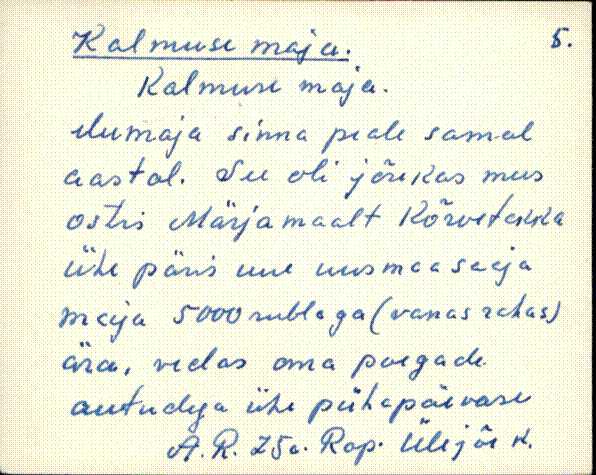 Kalmuse maja. 5.
Kalmuse maja.
elumaja sinna peale samal
aastal. See oli jõukas mees
ostis Märjamaalt Kõrvetakka
ühe päris uue uusmaasaaja
maja 5000 rublaga (vanas rahas)
ära, vedas oma poegade
autudega ühe pühapäevase
A.R. 75a. Rap. Ülejõe k.